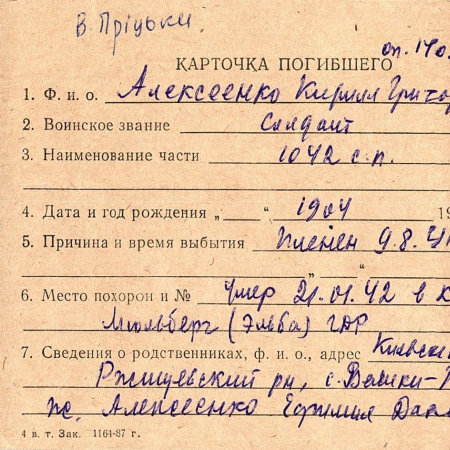 В. Пріцьки
оп. 140
КАРТОЧКА ПОГИБШЕГО
1. Ф. и. о. Алексеенко Кирилл Григор
2. Воинское звание Солдат
3. Наименование части 1042 с.п.
4. Дата и год рождения „ “ 1904 19
5. Причина и время выбытия Пленен 9.8.41
„ “
6. Место похорон и № Умер 21.01.42 в
Мюльберг (Эльба) ГДР
7. Сведения о родственниках, ф. и. о., адрес Киевск
Ржищевский рн, с.
ж. Алексеенко Ефимия
4 в. т. Зак. 1164-87 г.